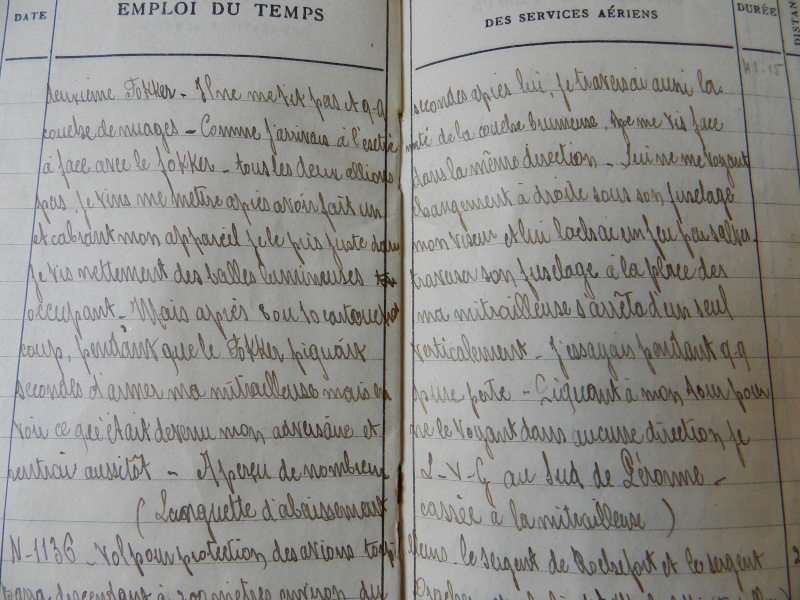 DATE
EMPLOI DU TEMPS
DES SERVICES AÉRIENS
DURÉE
DISTAN
deuxième Fokker - Il ne me vit pas et q-q secondes après lui, je traversai aussi la
couche de nuages - Comme j'arrivais à l' de la couche brumeuse, je me vis face
à face avec le fokker - tous les deux allions dans la même direction - Lui ne me voyant
pas, je vins me mettre après avoir fait un changement à droite sous son fuselage
et cabrant mon appareil je le pris juste dans mon viseur et lui lachai un feu par salves.
Je vis nettement des balles lumineuses traverser son fuselage à la place des
occupant - Mais après 8 ou 10 cartouches ma mitrailleuse s'arrêta d'un seul
coup, pendant que le Fokker piquait verticalement - J'essayai pendant q-q
secondes d'armer ma mitrailleuse mais en pure perte - Piquant à mon tour pour
voir ce qu'était devenu mon adversaire et ne le voyant dans aucune direction, je
rentrai aussitôt - Aperçu de nombreux L-V-G au Sud de Péronne -
( Languette d'abaissement cassée à la mitrailleuse )
N-1136 - Vol pour protection des avions le sergent de Rochefort et le sergent
descendant à 200 mètres environ du